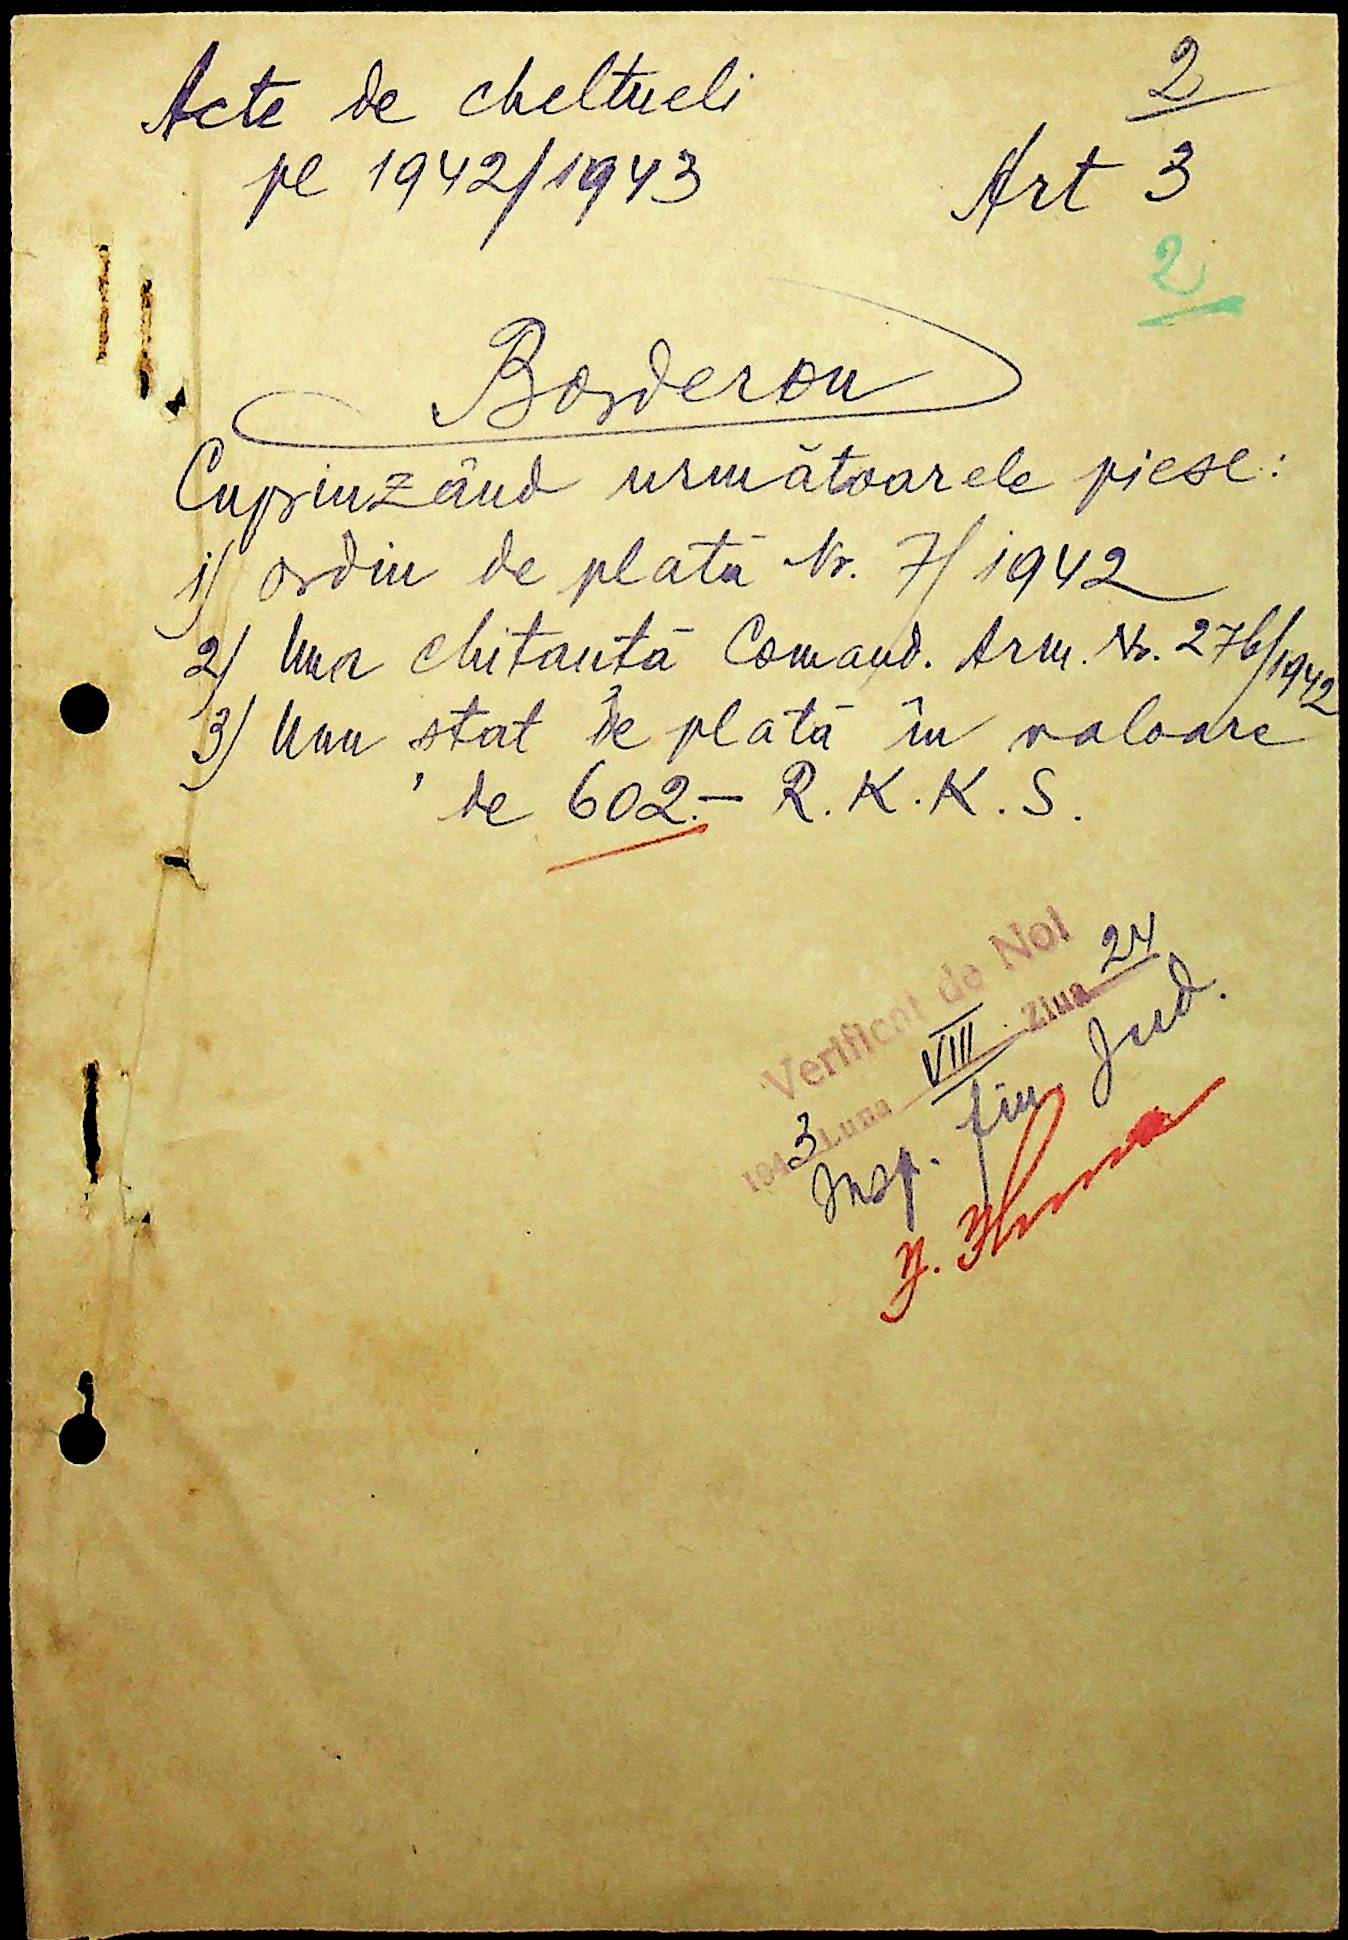 2
Acte de cheltueli
pe 1942/1943
Art 3
2
Borderou
Cuprinzând următoarele piese:
1) ordin de plată Nr. 7/1942
2) Una chitanță Comand. Arm. Nr. 276/1942
3) Unu ștat de plată în valoare
de 602.- R.K.K.S.
Verificat de Noi
1943 Luna VIII Ziua 24
Insp. fin. Jud.